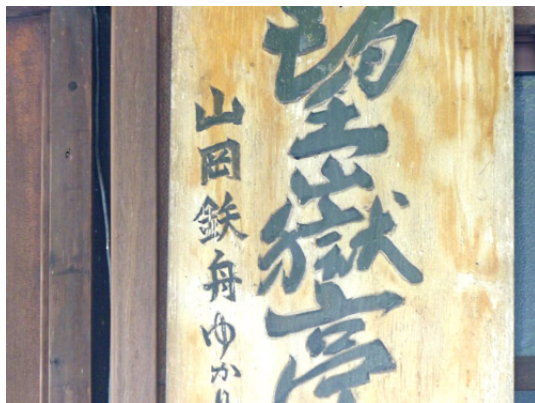 望嶽亭
山岡鉄舟ゆかり